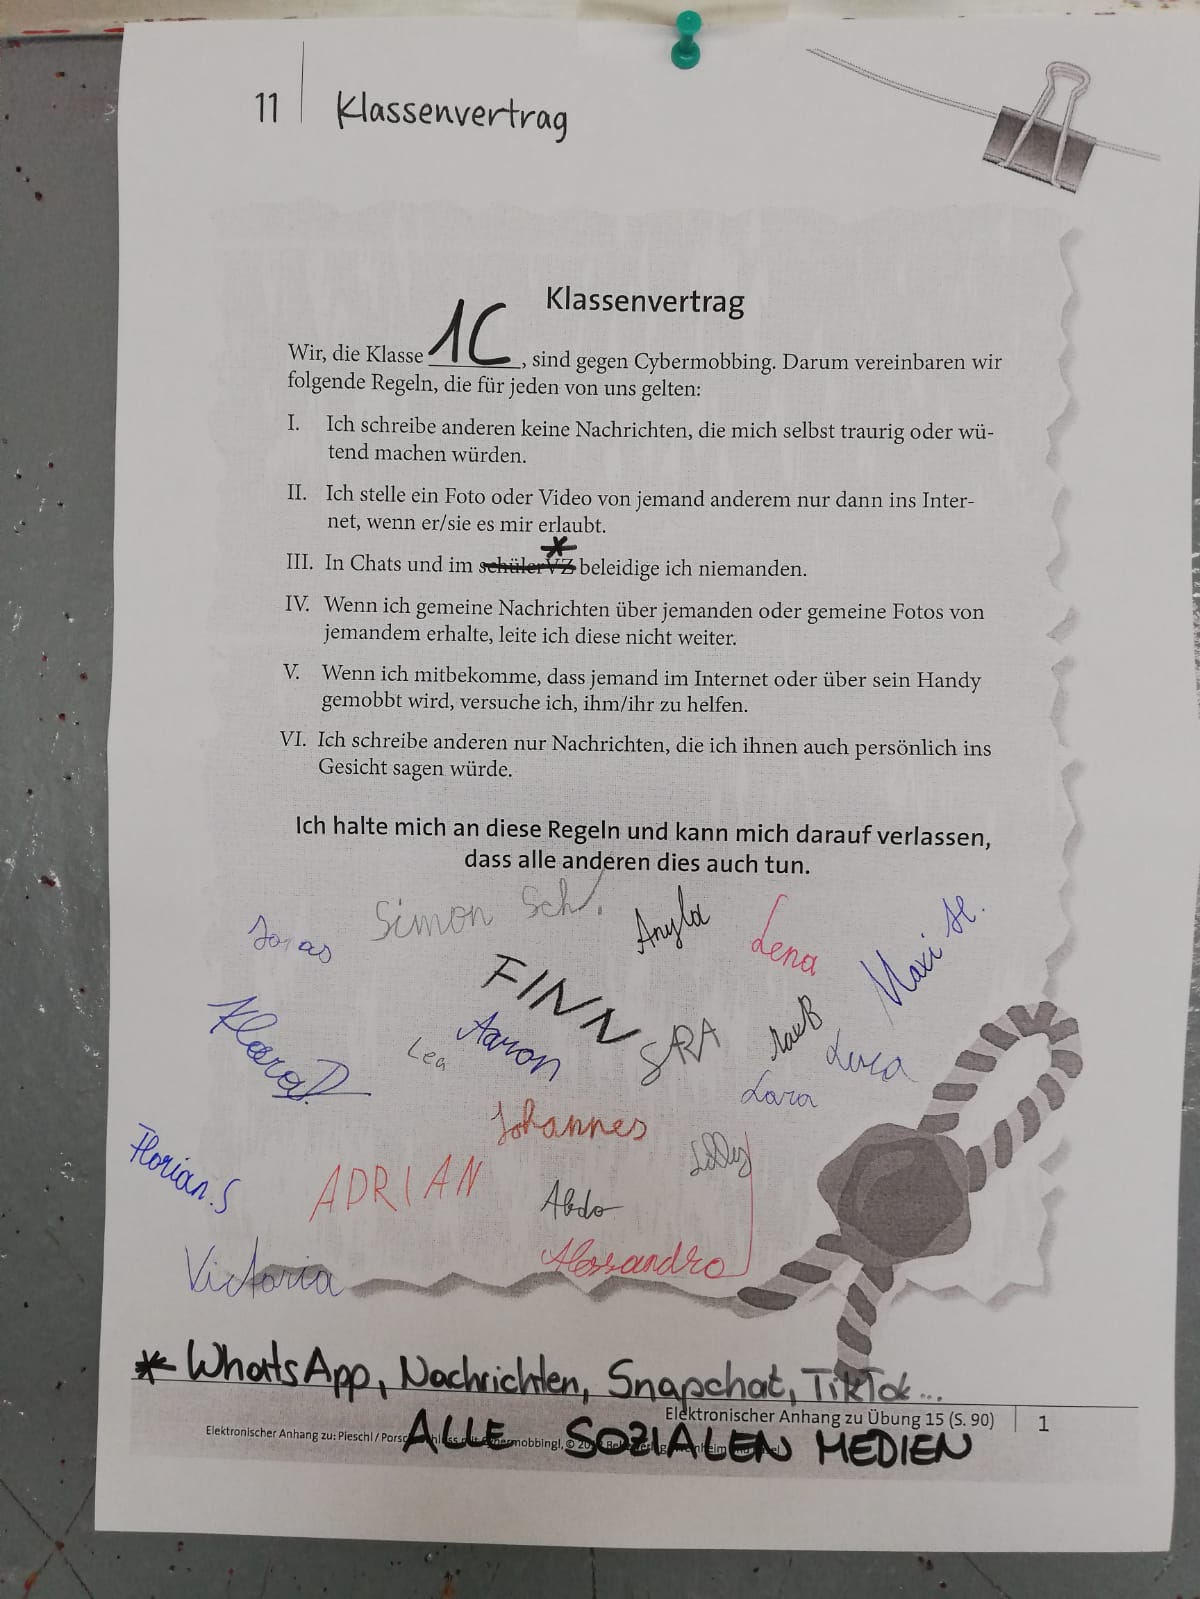 11 Klassenvertrag
Klassenvertrag
Wir, die Klasse 1C, sind gegen Cybermobbing. Darum vereinbaren wir
folgende Regeln, die für jeden von uns gelten:
I. Ich schreibe anderen keine Nachrichten, die mich selbst traurig oder wü-
tend machen würden.
II. Ich stelle ein Foto oder Video von jemand anderem nur dann ins Inter-
net, wenn er/sie es mir erlaubt.
*
III. In Chats und im schülerVZ beleidige ich niemanden.
IV. Wenn ich gemeine Nachrichten über jemanden oder gemeine Fotos von
jemandem erhalte, leite ich diese nicht weiter.
V. Wenn ich mitbekomme, dass jemand im Internet oder über sein Handy
gemobbt wird, versuche ich, ihm/ihr zu helfen.
VI. Ich schreibe anderen nur Nachrichten, die ich ihnen auch persönlich ins
Gesicht sagen würde.
Ich halte mich an diese Regeln und kann mich darauf verlassen,
dass alle anderen dies auch tun.
Jonas
Simon Sch.
Anyla
Lena
Maxi H.
FINN
Klara D.
Lea
Aaron
SARA
Luca
Lara
Johannes
Lilly
Florian.S
ADRIAN
Abdo
Alessandro
Victoria
* WhatsApp, Nachrichten, Snapchat, TikTok...
Elektronischer Anhang zu Übung 15 (S. 90) 1
Elektronischer Anhang zu: Pieschl / Porsch
ALLE SOZIALEN MEDIEN